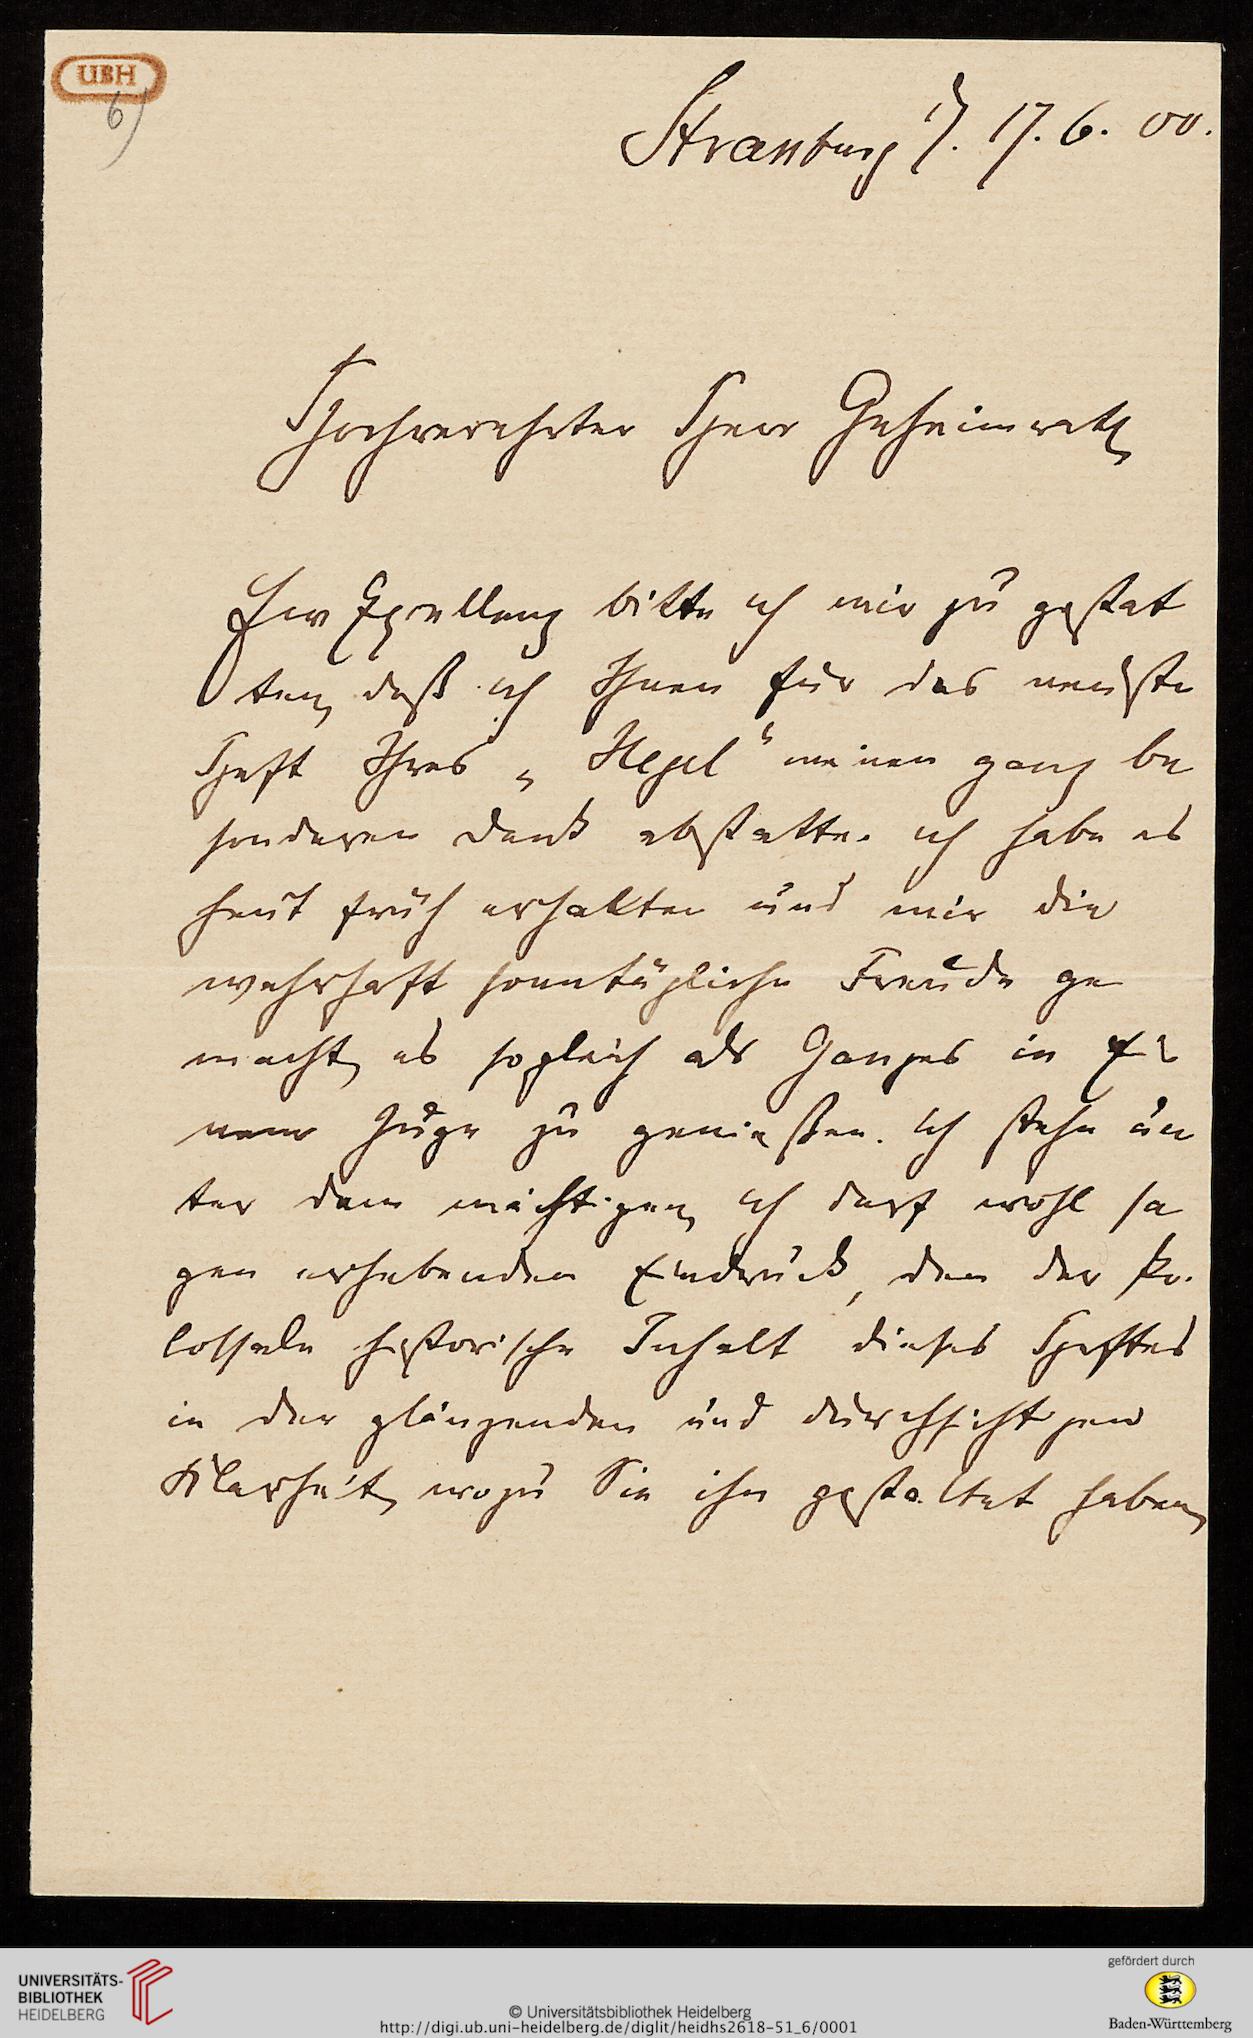 UBH
6)
Strassburg i/. 17. 6. 00.
Hochverehrter Herr Geheimrath,
Ew Exzellenz bitte ich mir zu gestat
ten, daß ich Ihnen für das neuste
Heft Ihres „Hegel“ meinen ganz be
sonderen Dank abstatte. Ich habe es
heut früh erhalten und mir die
wahrhaft sonntägliche Freude ge
macht, es sogleich als Ganzes in Ei
nem Zuge zu genießen. Ich stehe un
ter dem mächtigen, ich darf wohl sa
gen erhebenden Eindruck, den der ko.
lossale historische Inhalt dieses Heftes
in der glänzenden und durchsichtigen
Klarheit, wozu Sie ihn gestaltet haben,
UNIVERSITÄTS-
BIBLIOTHEK
HEIDELBERG
© Universitätsbibliothek Heidelberg
http://digi.ub.uni-heidelberg.de/diglit/heidhs2618-51_6/0001
gefördert durch
Baden-Württemberg